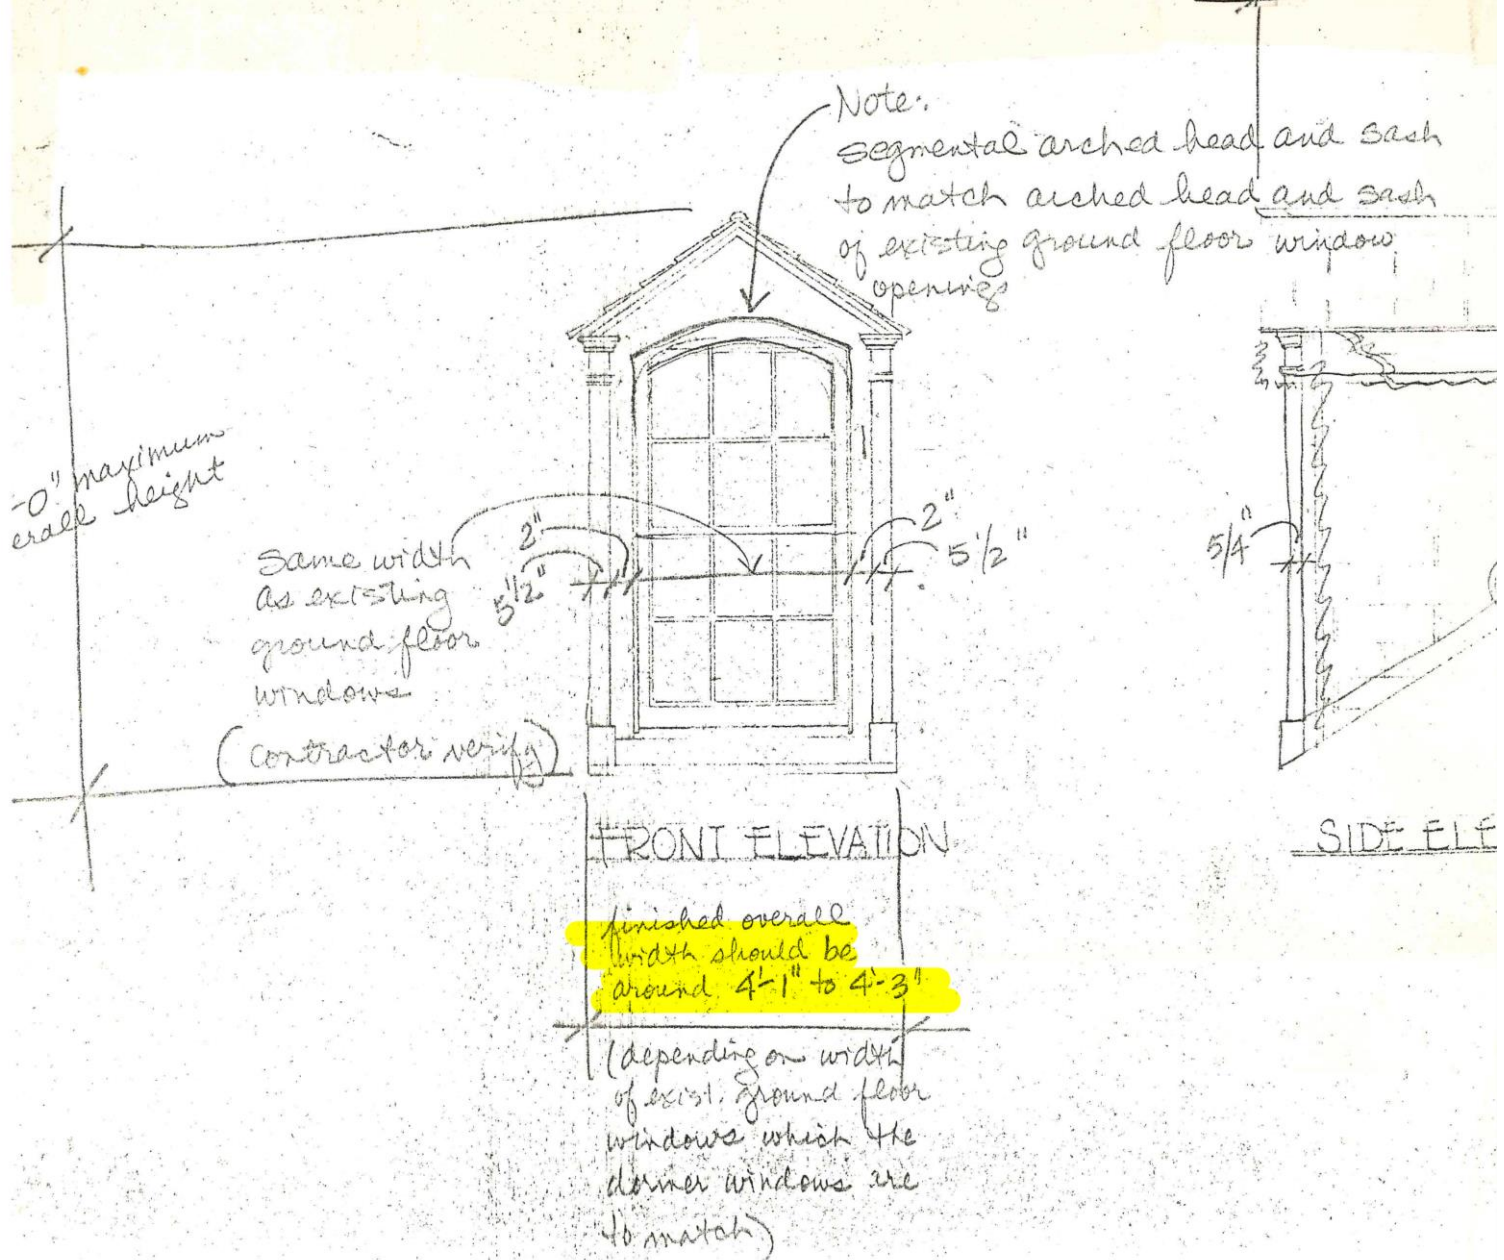 Note:
segmental arched head and sash
to match arched head and sash
of existing ground floor window
openings
-0" maximum
erall height
Same width
as existing
ground floor
windows
(contractor verify)
2"
5 1/2"
2"
5 1/2"
5/4"
FRONT ELEVATION
SIDE ELE
finished overall
width should be
around 4'-1" to 4'-3"
(depending on width
of exist. ground floor
windows which the
dormer windows are
to match)